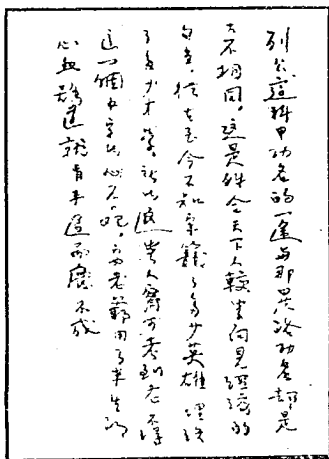 列公這科甲功名的一途與那異路功名卻是
大不相同。這是件合天下人較學問見經濟的
從古至今不知牢籠了多少英雄埋沒
了多少才學。所以人寧可考到老不得
這一個中字此心不死。安老爺用了半生的
心血難道就肯半途而廢不成